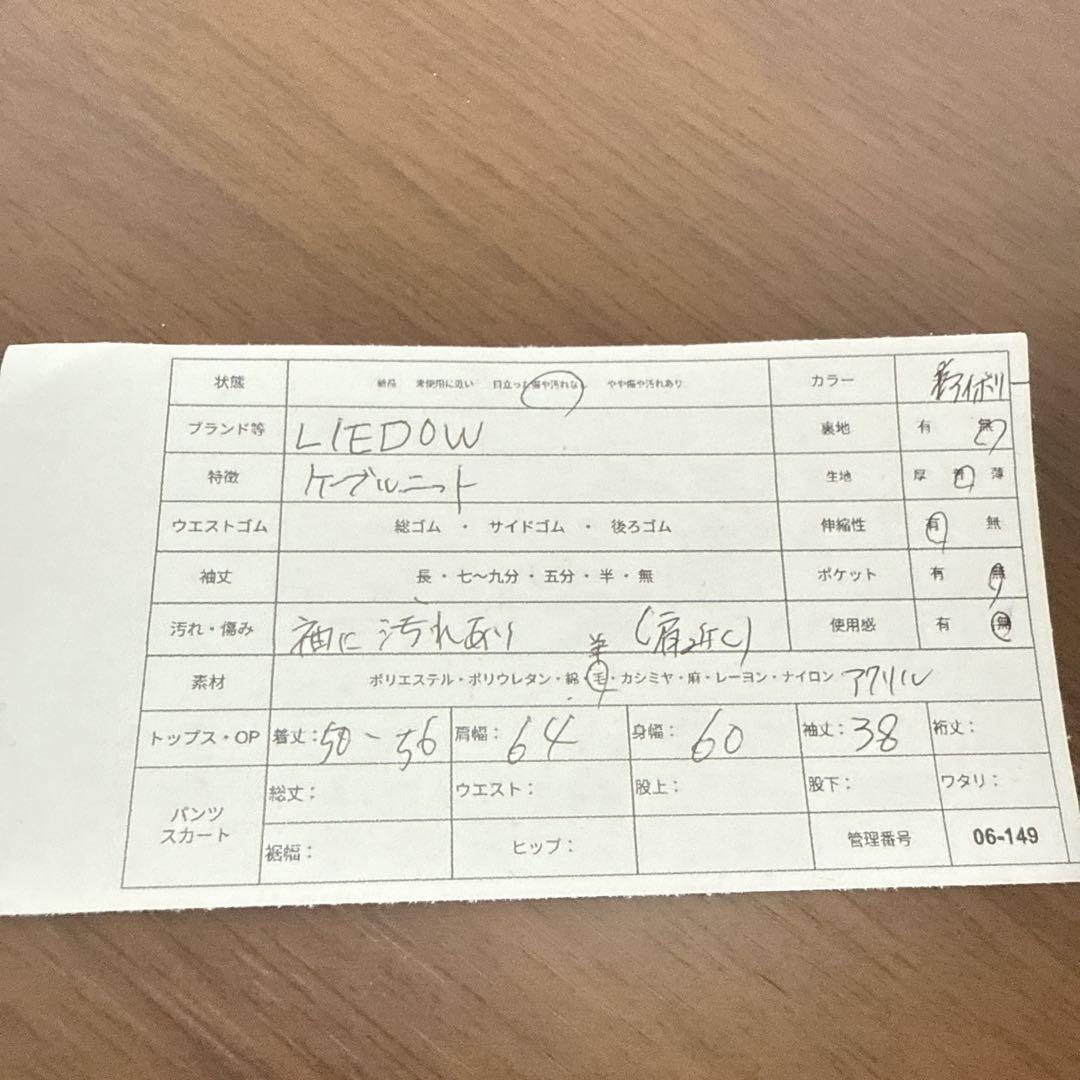 状態 新品 未使用に近い 目立った傷や汚れなし やや傷や汚れあり カラー アイボリ
ブランド等 LIEDOW 裏地 有 無
特徴 ケーブルニット 生地 厚 普 薄
ウエストゴム 総ゴム ・ サイドゴム ・ 後ろゴム 伸縮性 有 無
袖丈 長・七～九分・五分・半・無 ポケット 有 無
汚れ・傷み 袖に汚れあり (肩近く) 使用感 有 無
羊
素材 ポリエステル・ポリウレタン・綿・毛・カシミヤ・麻・レーヨン・ナイロン アクリル
トップス・OP 着丈：50～56 肩幅：64 身幅：60 袖丈：38 裄丈：
パンツ スカート 総丈： ウエスト： 股上： 股下： ワタリ：
裾幅： ヒップ： 管理番号 06-149